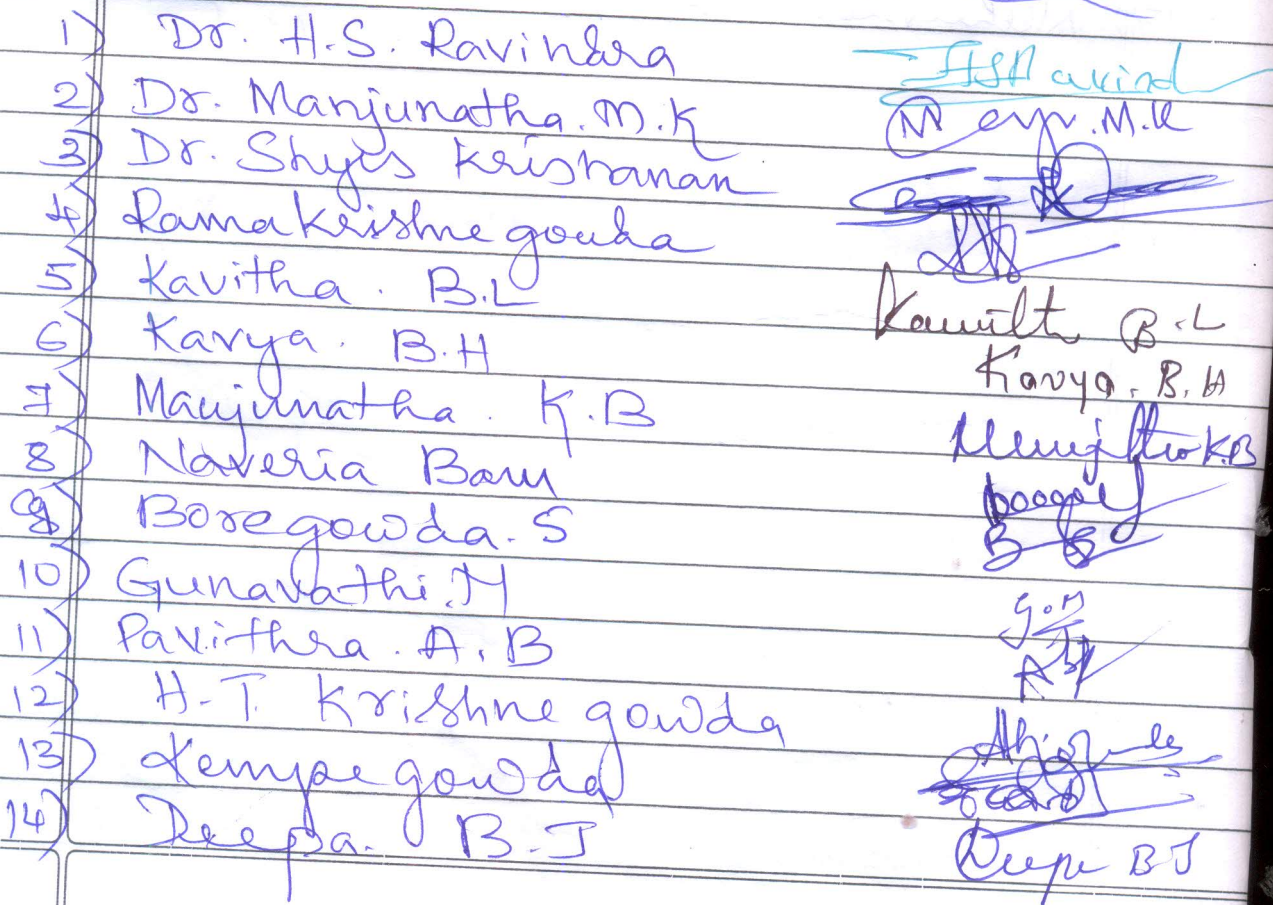 1) Dr. H.S. Ravindra
2) Dr. Manjunatha. M.K M.K
3) Dr. Shyis Krishanan
4) Ramakrishne gouda
5) Kavitha. B.L B.L
6) Kavya. B.H Kavya. B.H
7) Manjunatha. K.B K.B
8) Naveria Banu
9) Boregowda. S
10) Gunavathi. M G.M
11) Pavithra. A.B
12) H.T. Krishne gowda
13) Kempe gowda
14) Deepa. B.J B J